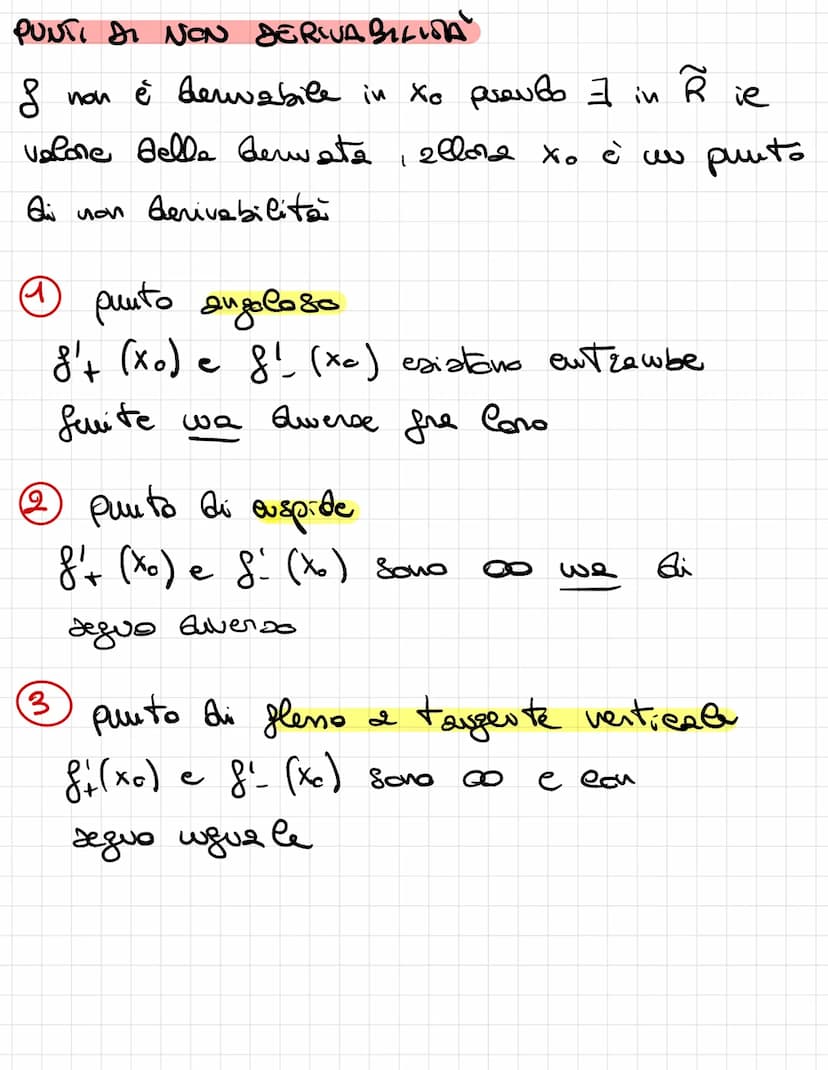 PUNTI DI NON DERIVABILITÀ
f non è derivabile in x₀ quando ∃ in R̃ il
valore della derivata, allora x₀ è un punto
di non derivabilità
① punto angoloso
f'₊ (x₀) e f'₋ (x₀) esistono entrambe
finite ma diverse fra loro
② punto di cuspide
f'₊ (x₀) e f'₋ (x₀) sono ∞ ma di
segno diverso
③ punto di flesso a tangente verticale
f'₊(x₀) e f'₋ (x₀) sono ∞ e con
segno uguale